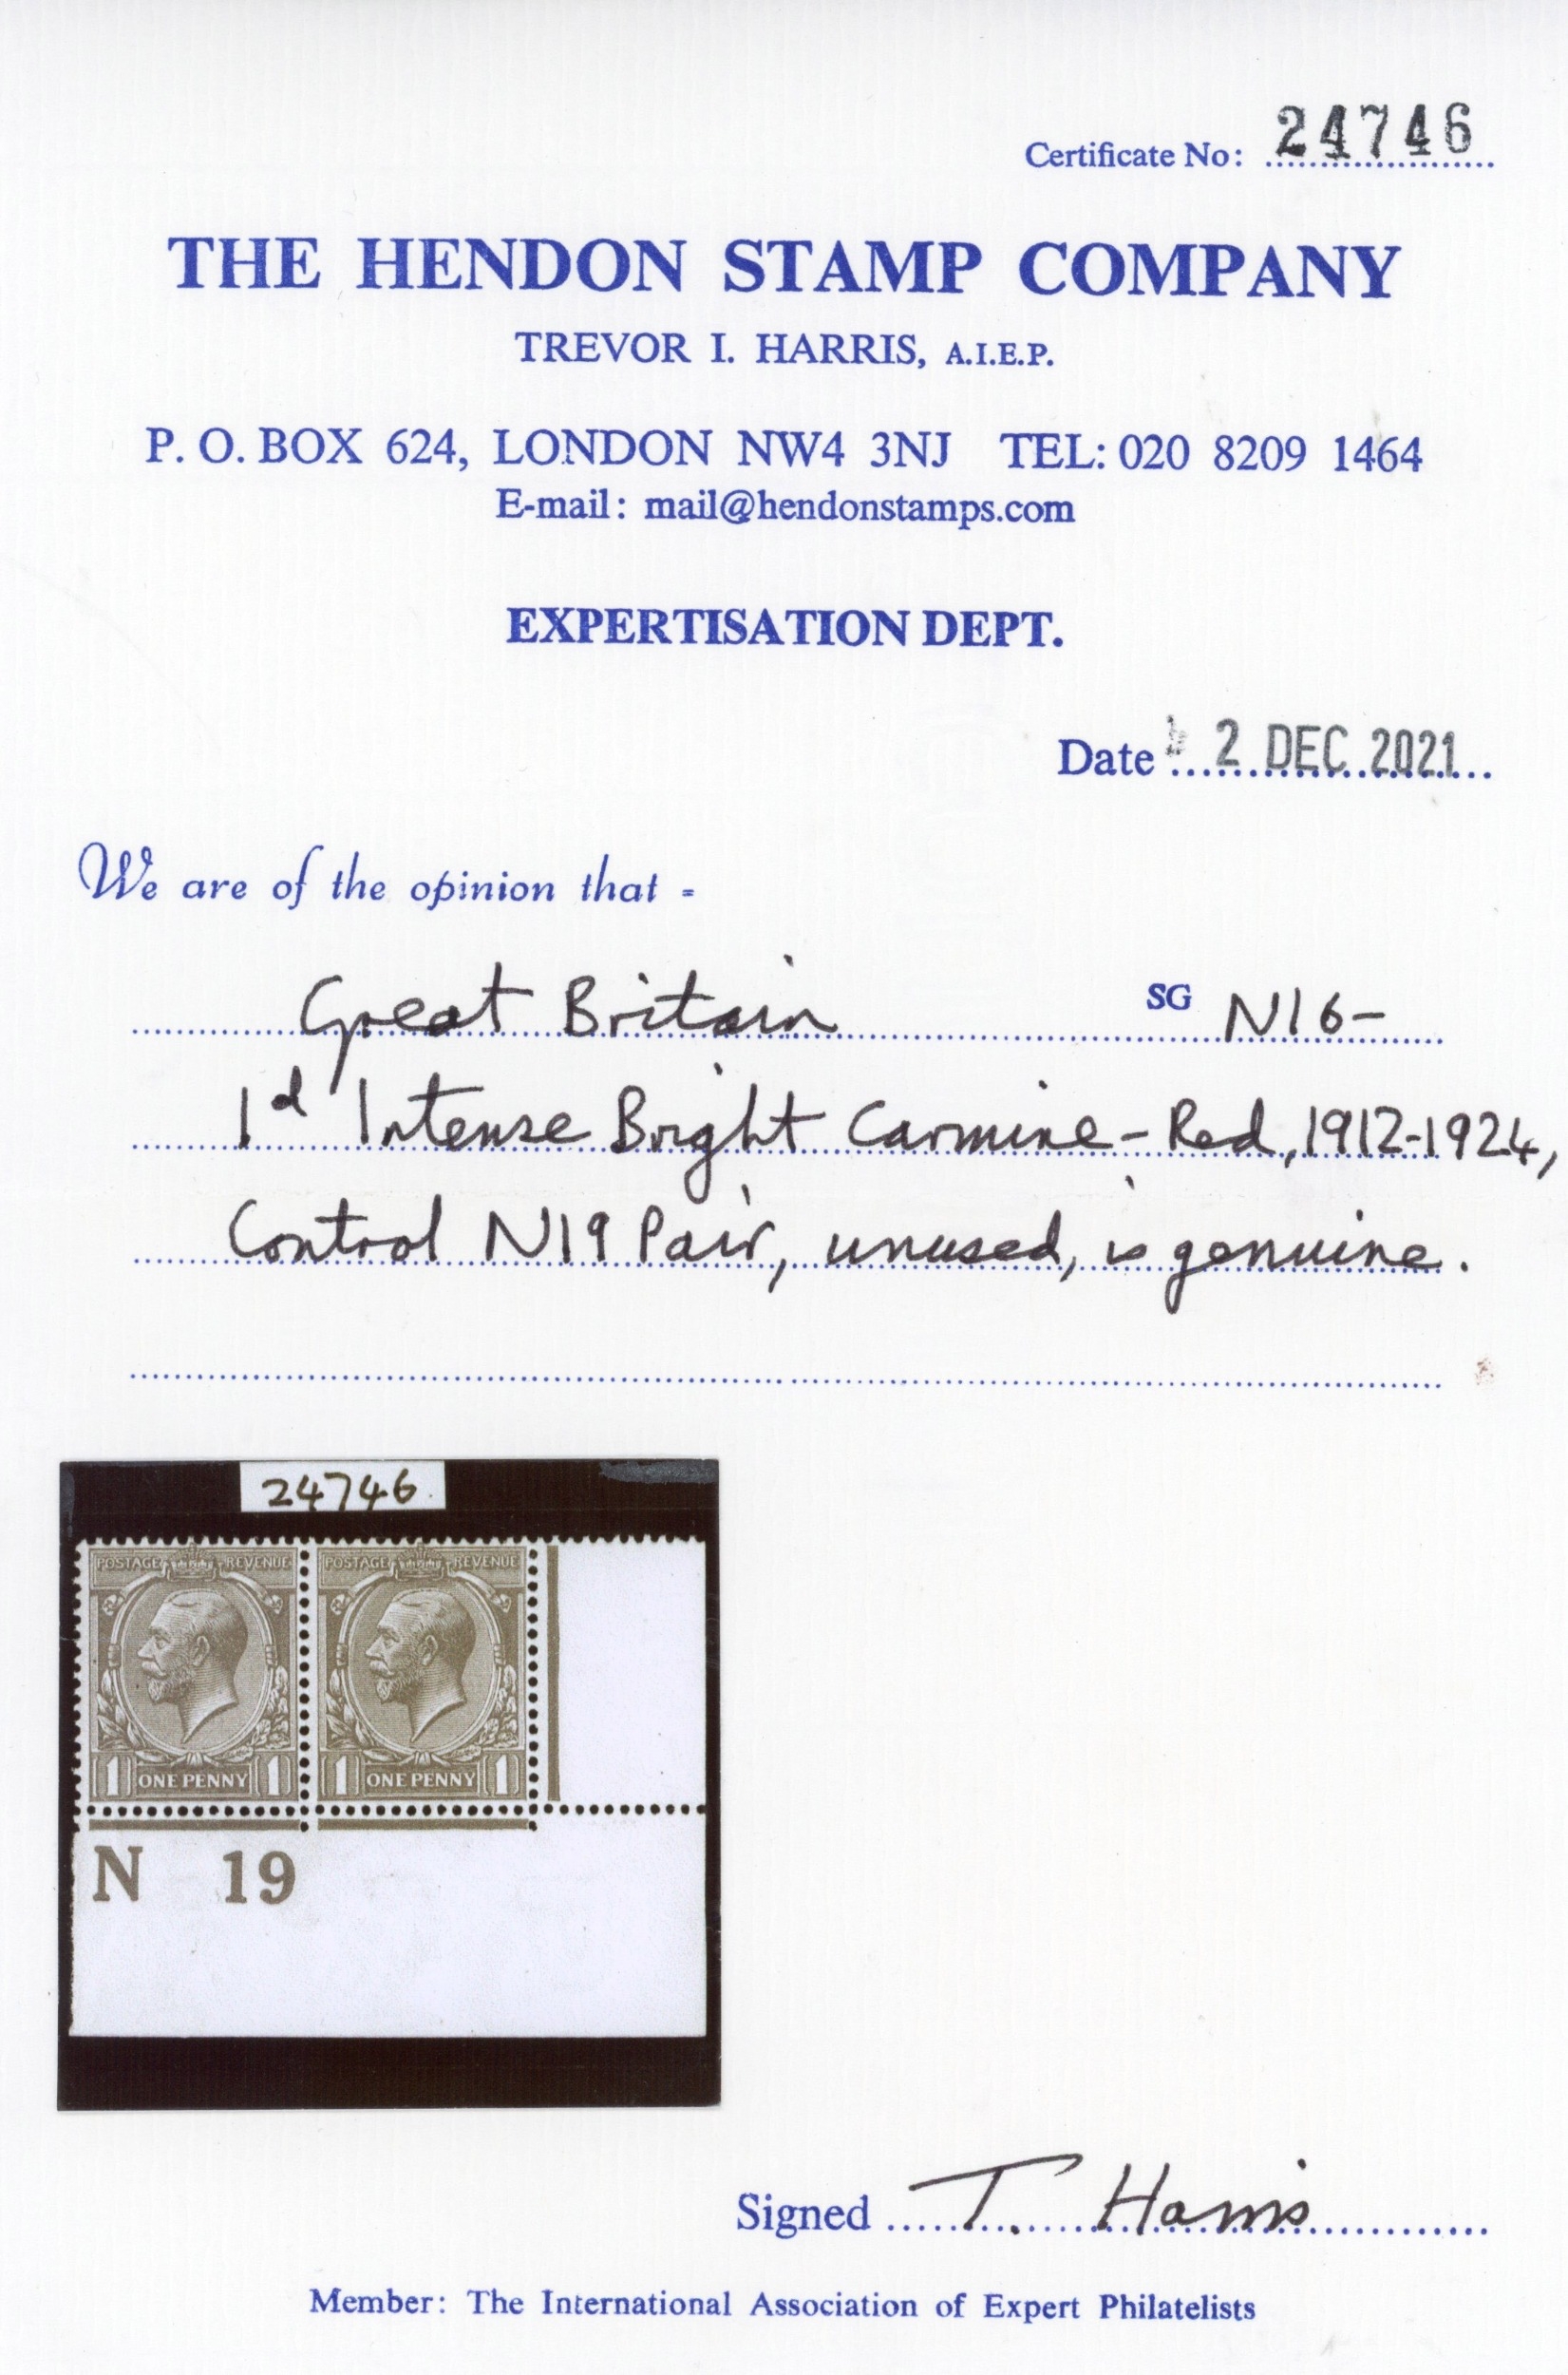 Certificate No: 24746
THE HENDON STAMP COMPANY
TREVOR I. HARRIS, A.I.E.P.
P. O. BOX 624, LONDON NW4 3NJ TEL: 020 8209 1464
E-mail: mail@hendonstamps.com
EXPERTISATION DEPT.
Date 2 DEC 2021
We are of the opinion that -
Great Britain SG N16-
1d Intense Bright Carmine-Red, 1912-1924,
Control N19 Pair, unused, is genuine.
24746
POSTAGE REVENUE POSTAGE REVENUE
1 ONE PENNY 1 1 ONE PENNY 1
N 19
Signed T. Harris
Member: The International Association of Expert Philatelists